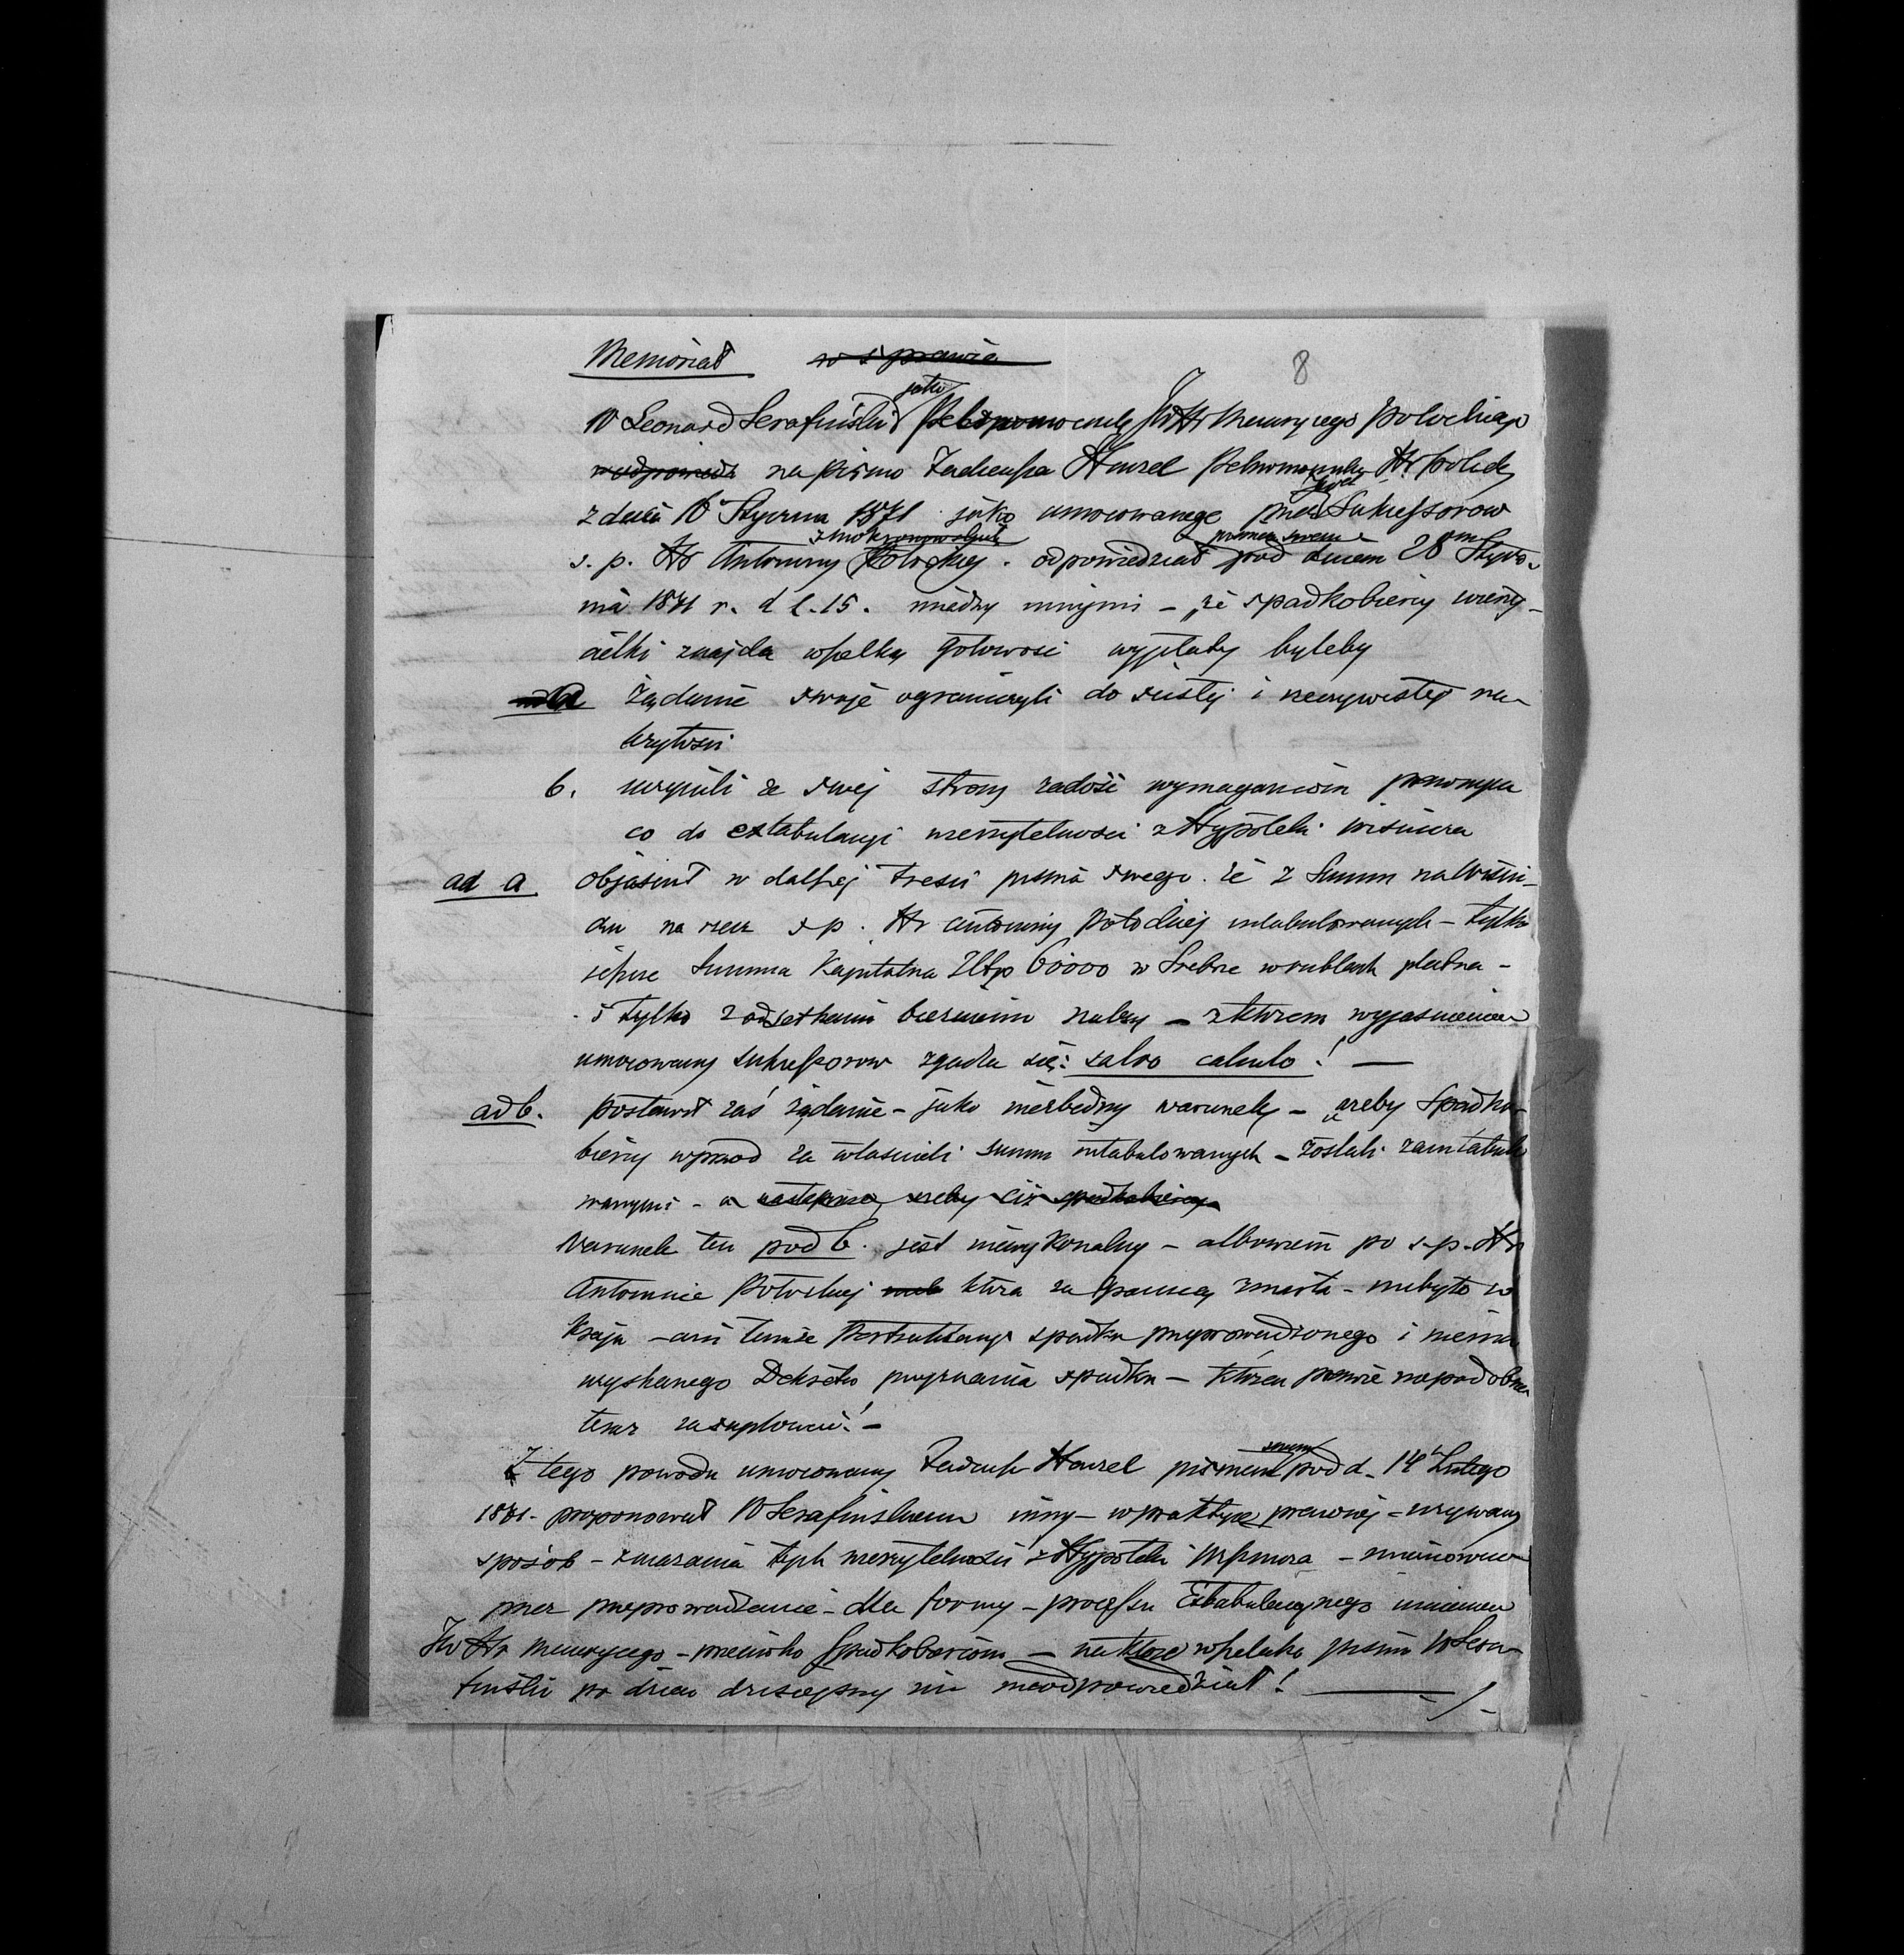 Memoriał w sprawie
8
jako
W Leonard Serafiński Pełnomocnik JW Hr Maurycego Potockiego
w odpowiedzi na pismo Tadeusza Hanzel Pełnomocnika Hr
z dnia 16 Stycznia 1871 jako umocowanego przez Sukcessorow
z Mokronowskich pismem swem
s. p. Hr Antoniny Potockiej . odpowiedział pod dniem 28 Stycz-
nia 1871 r. d l. 15. między innymi – „że spadkobiercy wierzy-
cielki znajdą wszelką gotowość wypłaty byleby
a żądanie swoje ograniczyli do ścisłej i rzeczywistej na-
leżytości
b. uczynili ze swej strony zadość wymaganiom prawnym
co do extabulacyi wierzytelności z Hypoteki Wiśnicza
ad a objaśnił w dalszej treści pisma swego. że z Summ na Wiśni-
czu na rzecz s p. Hr Antoniny Potockiej intabulowanych – tylko
jeszcze Summa Kapitalna Złtp 60000 w Srebrze w rublach płatna –
i tylko z odsetkami bieżącemi należy – z którem wyjaśnieniem
umocowany sukcessorow zgadza się: salvo calculo! —
ad b. postawił zaś żądanie – jako niezbędny warunek – „ażeby Spadko-
biercy wprzod za właścicieli summ intabulowanych – zostali zaintabulo
wanymi – a następnie, ażeby ciż spadkobiercy
Warunek ten pod b. jest niewykonalny – albowiem po s.p. Hr
Antoninie Potockiej która za granicą zmarła – niebyło w
kraju – ani tamże pertraktacyi spadku przeprowadzonego i niema
uzyskanego Dekretu przyznania spadku – teraz zasuplować! –
Z tego powodu umocowany Tadeusz Hanzel pismem swem pod d. 14 Lutego
1871. proponował W Serafińskiemu inny – w praktyce prawnej – używany
sposób – zmazania tych wierzytelności z Hypoteki Wisnicza – mianowicie
przez przeprowadzenie – dla formy – processu Extabulacyjnego imieniem
JW Hr Maurycego – przeciwko Spadkobiercom – na które wszelako pismo W Sera-
fiński po dzień dzisiejszy nic nieodpowiedział! —